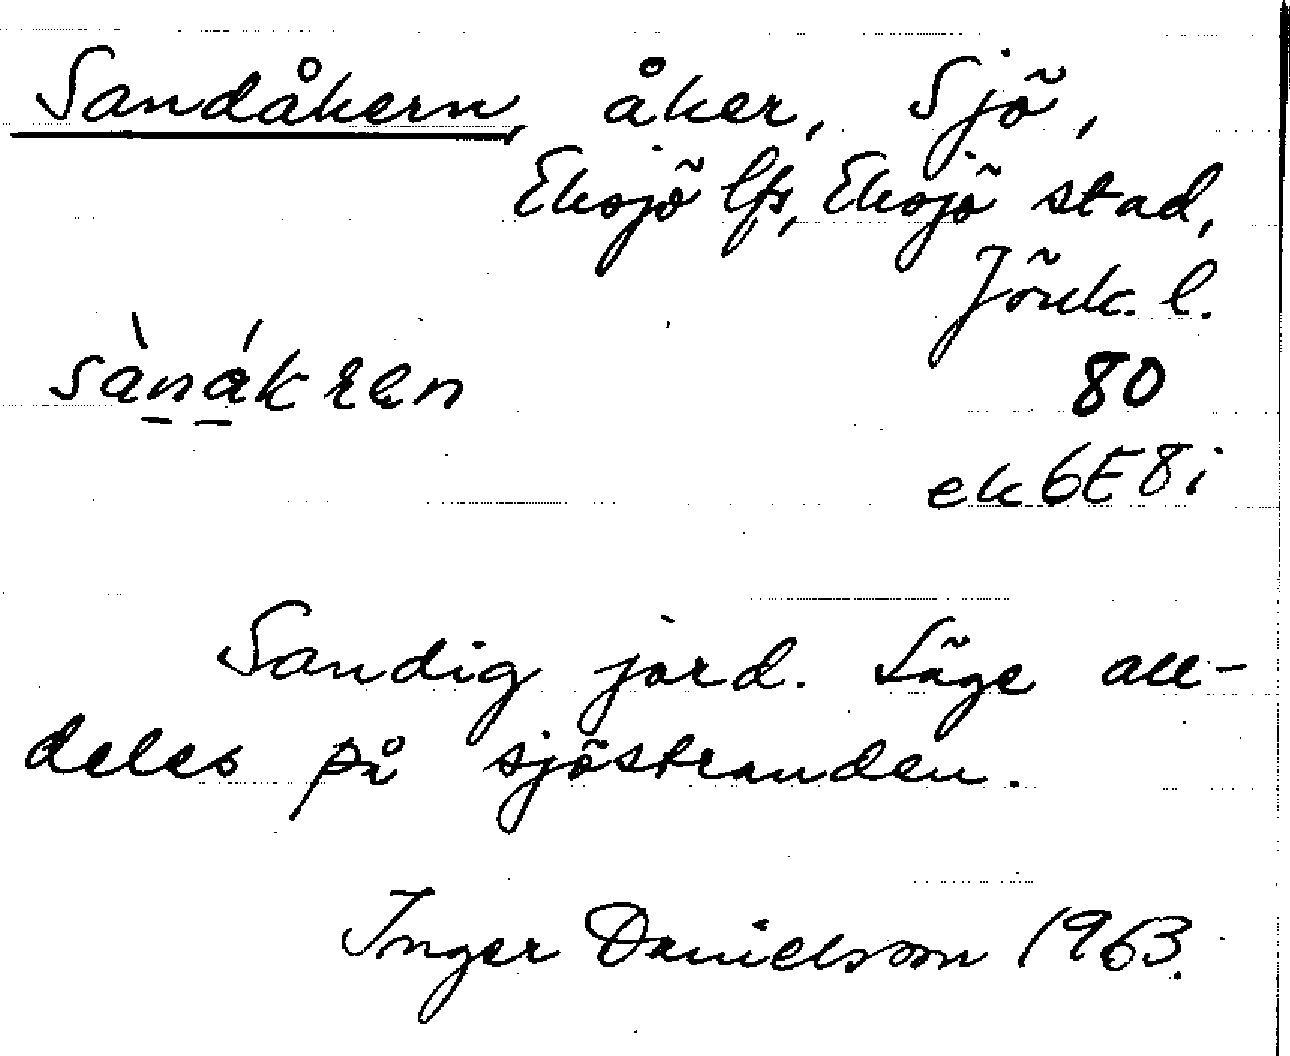 Sandåkern, åker, Sjö,
Eksjö lfs, Eksjö stad,
Jönk. l.
sànákren 80
ek 6E8i
Sandig jord. Läge all-
deles på sjöstranden.
Inger Danielsson 1963.